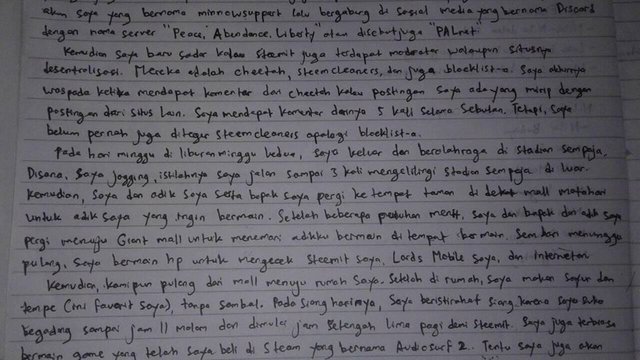 akun saya yang bernama minnowsupport lalu bergabung di sosial media yang bernama Discord
dengan nama server "Peace, Abundance, Liberty" atau disebut juga "PALnet"
Kemudian saya baru sadar kalau Steemit juga terdapat moderator walaupun situsnya
desentralisasi. Mereka adalah cheetah, steemcleaners, dan juga blacklist-a. Saya akhirnya
waspada ketika mendapat komentar dari cheetah kalau postingan saya ada yang mirip dengan
postingan dari situs lain. Saya mendapat komentar darinya 5 kali selama sebulan. Tetapi, saya
belum pernah juga ditegur steemcleaners apalagi blacklist-a.
Pada hari minggu di liburan minggu kedua, saya keluar dan berolahraga di stadion sempaja.
Disana, saya jogging, istilahnya saya jalan sampai 3 kali mengelilingi stadion sempaja di luar.
Kemudian, saya dan adik saya serta bapak saya pergi ke tempat taman di dekat mall matahari
untuk adik saya yang ingin bermain. Setelah beberapa puluhan menit, saya dan bapak dan adik saya
pergi menuju Giant mall untuk menemani adikku bermain di tempat bermain. Sembari menunggu
pulang, saya bermain hp untuk mengecek steemit saya, Lords Mobile saya, dan Internetan
Kemudian, kamipun pulang dari mall menuju rumah saya. Setelah di rumah, saya makan sayur dan
tempe (ini favorit saya), tanpa sambal. Pada siang harinya, saya beristirahat siang karena saya suka
begadang sampai jam 11 malam dan dimulai jam setengah lima pagi demi steemit. Saya juga terbiasa
bermain game yang telah saya beli di Steam yang bernama Audiosurf 2. Tentu saya juga akan